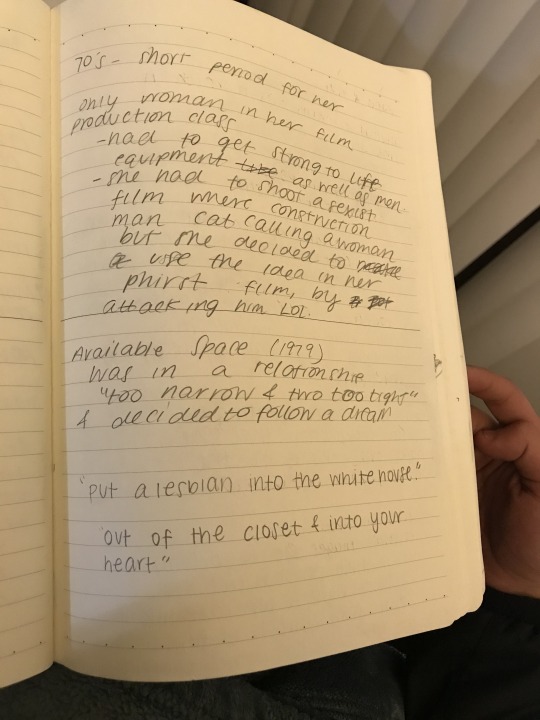 70's - short period for her
only woman in her film
production class
-had to get strong to life
equipment as well as men
-she had to shoot a sexist
film where constrvction
man cat calling a woman
but she decided to
use the idea in her
phirst film, by
attacking him LOL.
Available Space (1979)
was in a relationship
"too narrow & two too tight"
& decided to follow a dream
"put a lesbian into the white house."
"out of the closet & into your
heart"